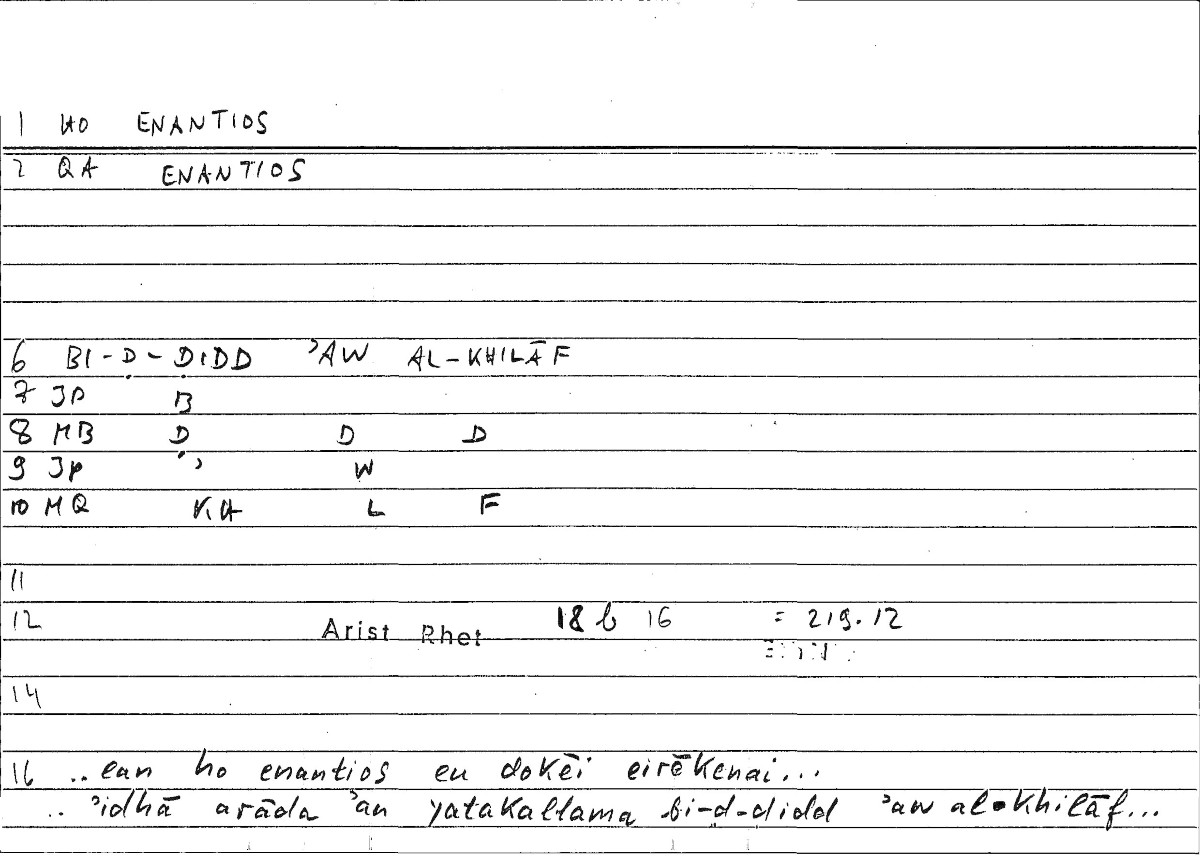 1 HO ENANTIOS
2 QA ENANTIOS
6 BI-Ḍ-ḌIDD ʾAW AL-KHILĀF
7 JP B
8 MB Ḍ D D
9 JP ʾ W
10 MQ KH L F
11
12 Arist Rhet 18 b 16 = 219.12
14
16 ..ean ho enantios eu dokēi eirēkenai...
.. ʾidhā arāda ʾan yatakallama bi-ḍ-ḍidd ʾaw al-khilāf...